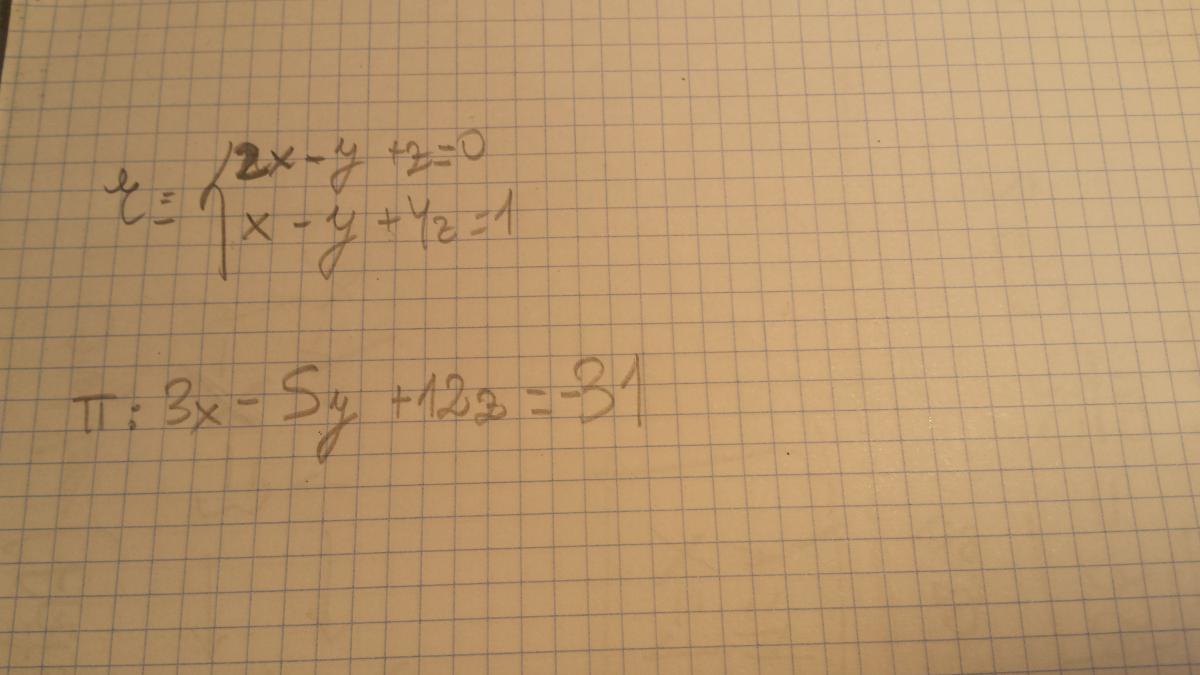 r ≡ { 2x - y + z = 0
x - y + 4z = 1
π: 3x - 5y + 12z = -31